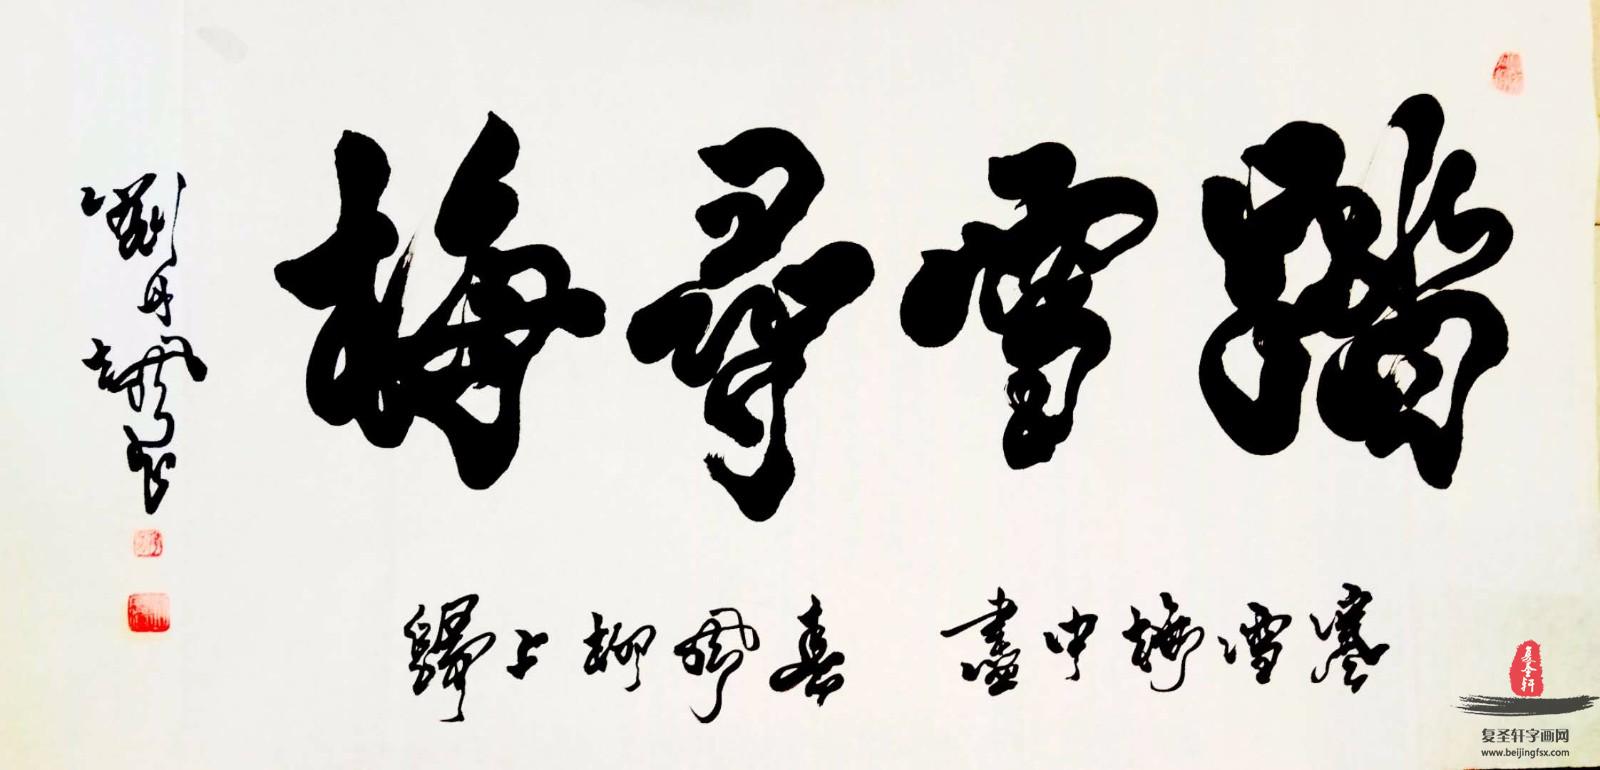 踏雪尋梅
寒雪梅中盡 春風柳上歸
劉月
复圣轩
复圣轩字画网
www.beijingfsx.com